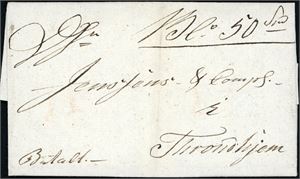 Blc. 50 Sp
Jenssens & Comp.
i
Throndhjem
Betalt.